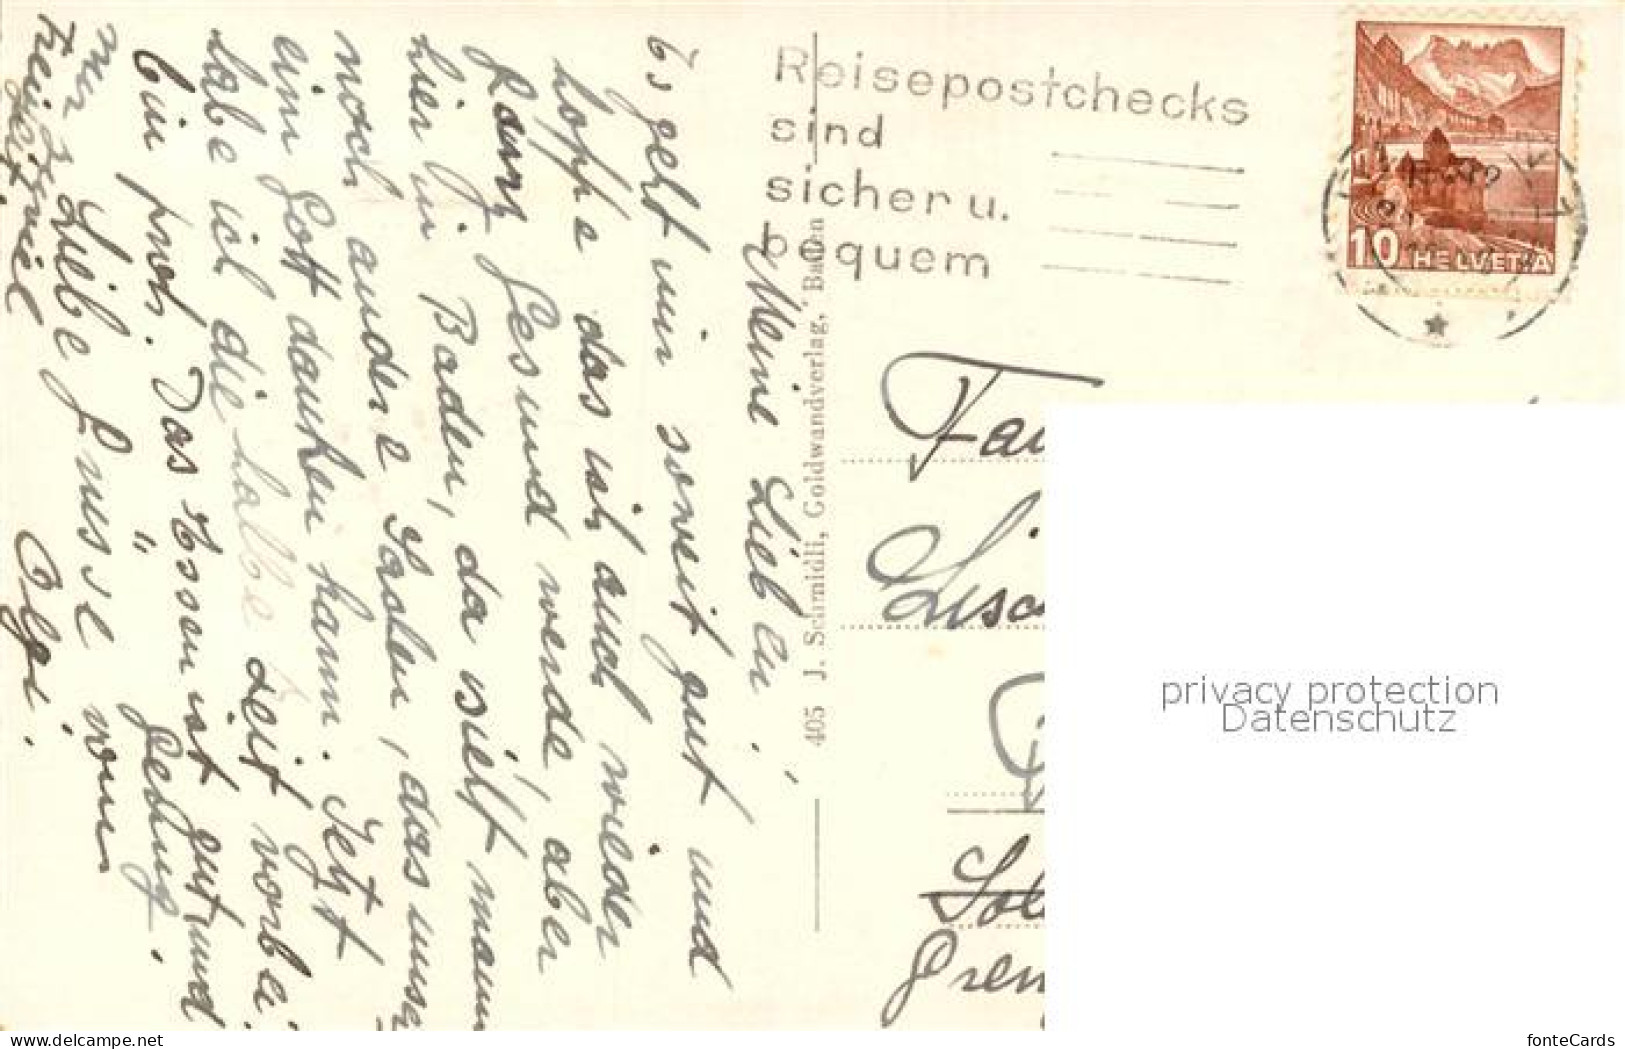 Meine Lieben!
Es geht mir soweit gut und
hoffe das ich auch wieder
ganz Gesund werde, aber
hier in Baden, da sieht mann
noch andere Sachen, das unser
eim Gott danken kann. Jetzt
habe ich die halbe Zeit vorbei
bin froh. Das Essen ist gut und
genug.
Liebe Grüsse von
Olgi.
Reisepostchecks
sind
sicher u.
bequem
10 HELVETIA
405 J. Schmidli, Goldwandverlag, Baden
Fam
Gren
privacy protection
Datenschutz
www.delcampe.net
fonteCards